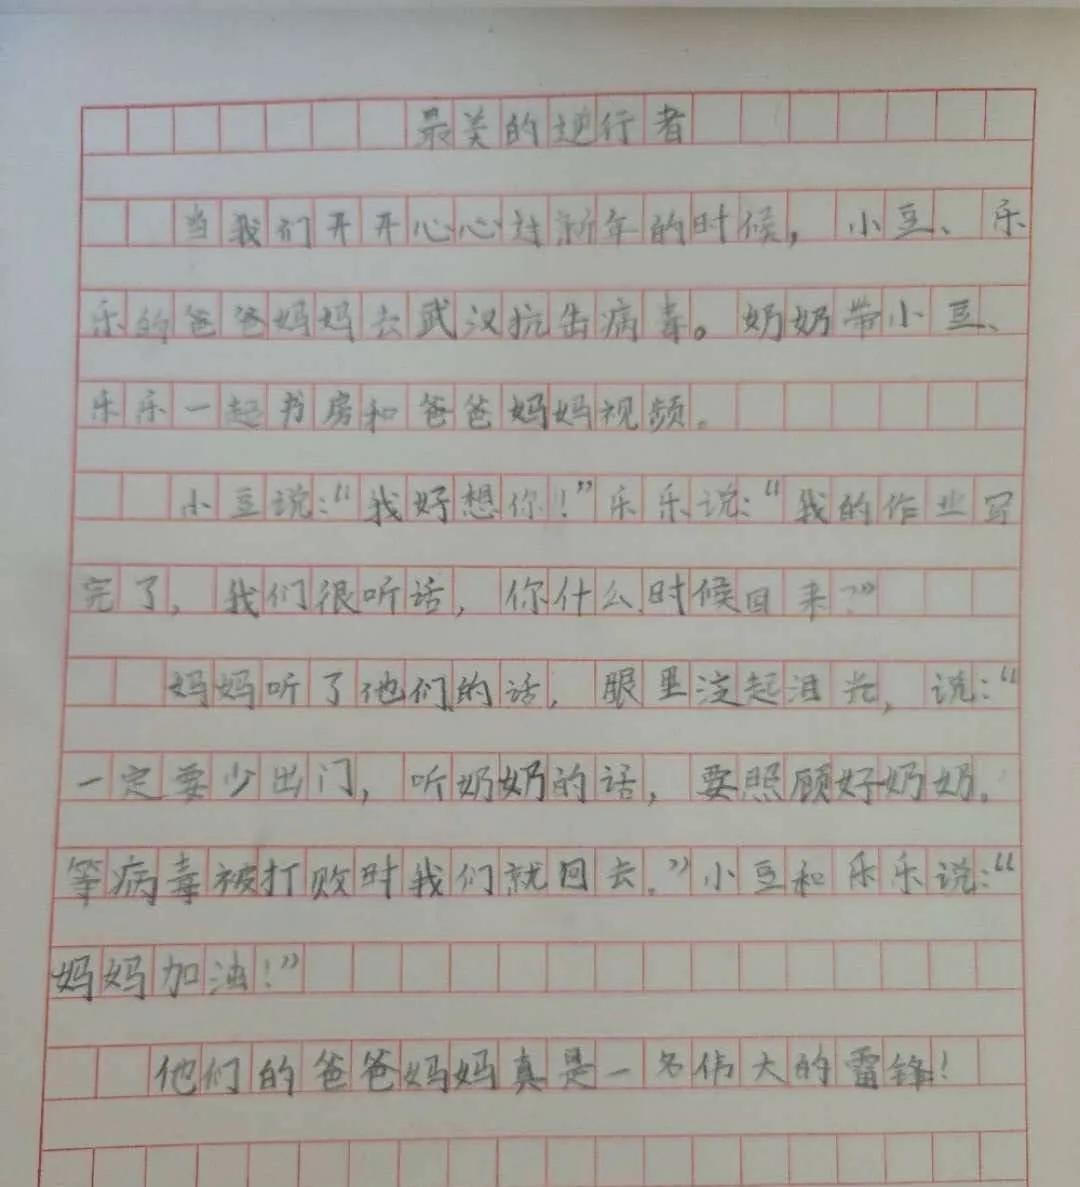 最美的逆行者
当我们开开心心过新年的时候，小豆、乐
乐的爸爸妈妈去武汉抗击病毒。奶奶带小豆、
乐乐一起书房和爸爸妈妈视频。
小豆说：“我好想你！”乐乐说：“我的作业写
完了，我们很听话，你什么时候回来？”
妈妈听了他们的话，眼里泛起泪光，说：“
一定要少出门，听奶奶的话，要照顾好奶奶。
等病毒被打败时我们就回去。”小豆和乐乐说：“
妈妈加油！”
他们的爸爸妈妈真是一名伟大的雷锋！